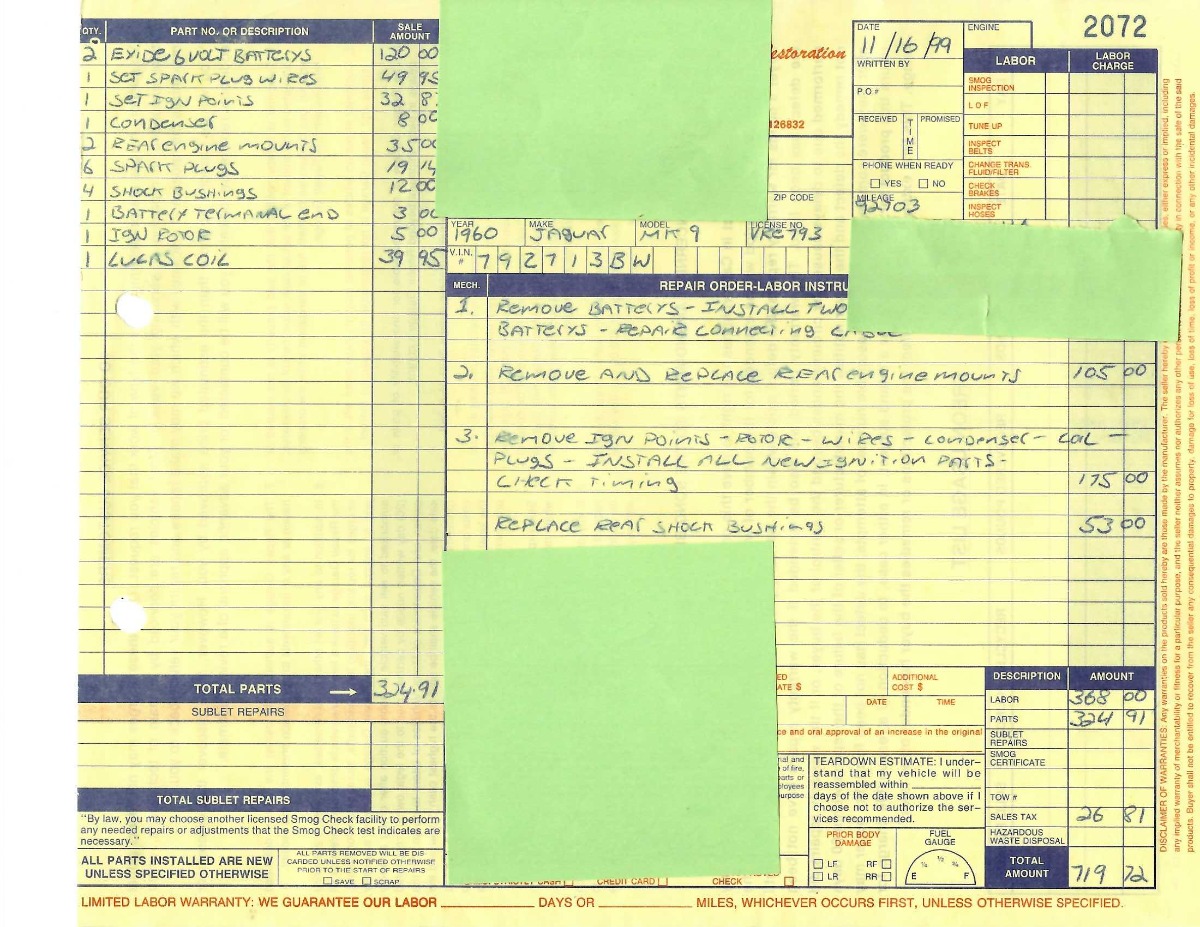 QTY. PART NO. OR DESCRIPTION SALE AMOUNT
2 EXIDE 6 VOLT BATTERYS 120 00
1 SET SPARK PLUG WIRES 49 95
1 SET IGN POINTS 32 87
1 CONDENSER 8 00
2 REAR ENGINE MOUNTS 35 00
6 SPARK PLUGS 19 14
4 SHOCK BUSHINGS 12 00
1 BATTERY TERMANAL END 3 00
1 IGN ROTOR 5 00
1 LUCAS COIL 39 95
TOTAL PARTS → 324.91
SUBLET REPAIRS
TOTAL SUBLET REPAIRS
"By law, you may choose another licensed Smog Check facility to perform
any needed repairs or adjustments that the Smog Check test indicates are
necessary."
ALL PARTS INSTALLED ARE NEW
UNLESS SPECIFIED OTHERWISE
ALL PARTS REMOVED WILL BE DIS-
CARDED UNLESS NOTIFIED OTHERWISE
PRIOR TO THE START OF REPAIRS
SAVE SCRAP
estoration
126832
ZIP CODE
DATE
11/16/99
WRITTEN BY
P.O.#
RECEIVED TIME PROMISED
PHONE WHEN READY
YES NO
MILEAGE
92703
ENGINE
2072
LABOR LABOR CHARGE
SMOG INSPECTION
L O F
TUNE UP
INSPECT BELTS
CHANGE TRANS. FLUID/FILTER
CHECK BRAKES
INSPECT HOSES
YEAR MAKE MODEL LICENSE NO.
1960 JAGUAR MK 9 VRE 793
V.I.N. # 792713BW
MECH. REPAIR ORDER-LABOR INSTRU
1. REMOVE BATTERYS - INSTALL TWO
BATTERYS - REPAIR CONNECTING CABLE
2. REMOVE AND REPLACE REAR ENGINE MOUNTS 105 00
3. REMOVE IGN POINTS - ROTOR - WIRES - CONDENSER - COIL -
PLUGS - INSTALL ALL NEW IGNITION PARTS -
CHECK TIMING 175 00
REPLACE REAR SHOCK BUSHINGS 53 00
ED
ATE $
ADDITIONAL
COST $
DATE TIME
ce and oral approval of an increase in the original
nal and
of fire,
arts or
ployees
urpose
TEARDOWN ESTIMATE: I under-
stand that my vehicle will be
reassembled within
days of the date shown above if I
choose not to authorize the ser-
vices recommended.
PRIOR BODY DAMAGE
LF RF
LR RR
FUEL GAUGE
E 1/4 1/2 3/4 F
CREDIT CARD CHECK
DESCRIPTION AMOUNT
LABOR 368 00
PARTS 324 91
SUBLET REPAIRS
SMOG CERTIFICATE
TOW #
SALES TAX 26 81
HAZARDOUS WASTE DISPOSAL
TOTAL AMOUNT 719 72
LIMITED LABOR WARRANTY: WE GUARANTEE OUR LABOR DAYS OR MILES, WHICHEVER OCCURS FIRST, UNLESS OTHERWISE SPECIFIED.
DISCLAIMER OF WARRANTIES: Any warranties on the products sold hereby are those made by the manufacturer. The seller hereby
es, either express or implied, including
any implied warranty of merchantability or fitness for a particular purpose, and the seller neither assumes nor authorizes any other per
y in connection with the sale of the said
products. Buyer shall not be entitled to recover from the seller any consequential damages, damages to property, damage for loss of use, loss of time, loss of profit or income, or any other incidental damages.